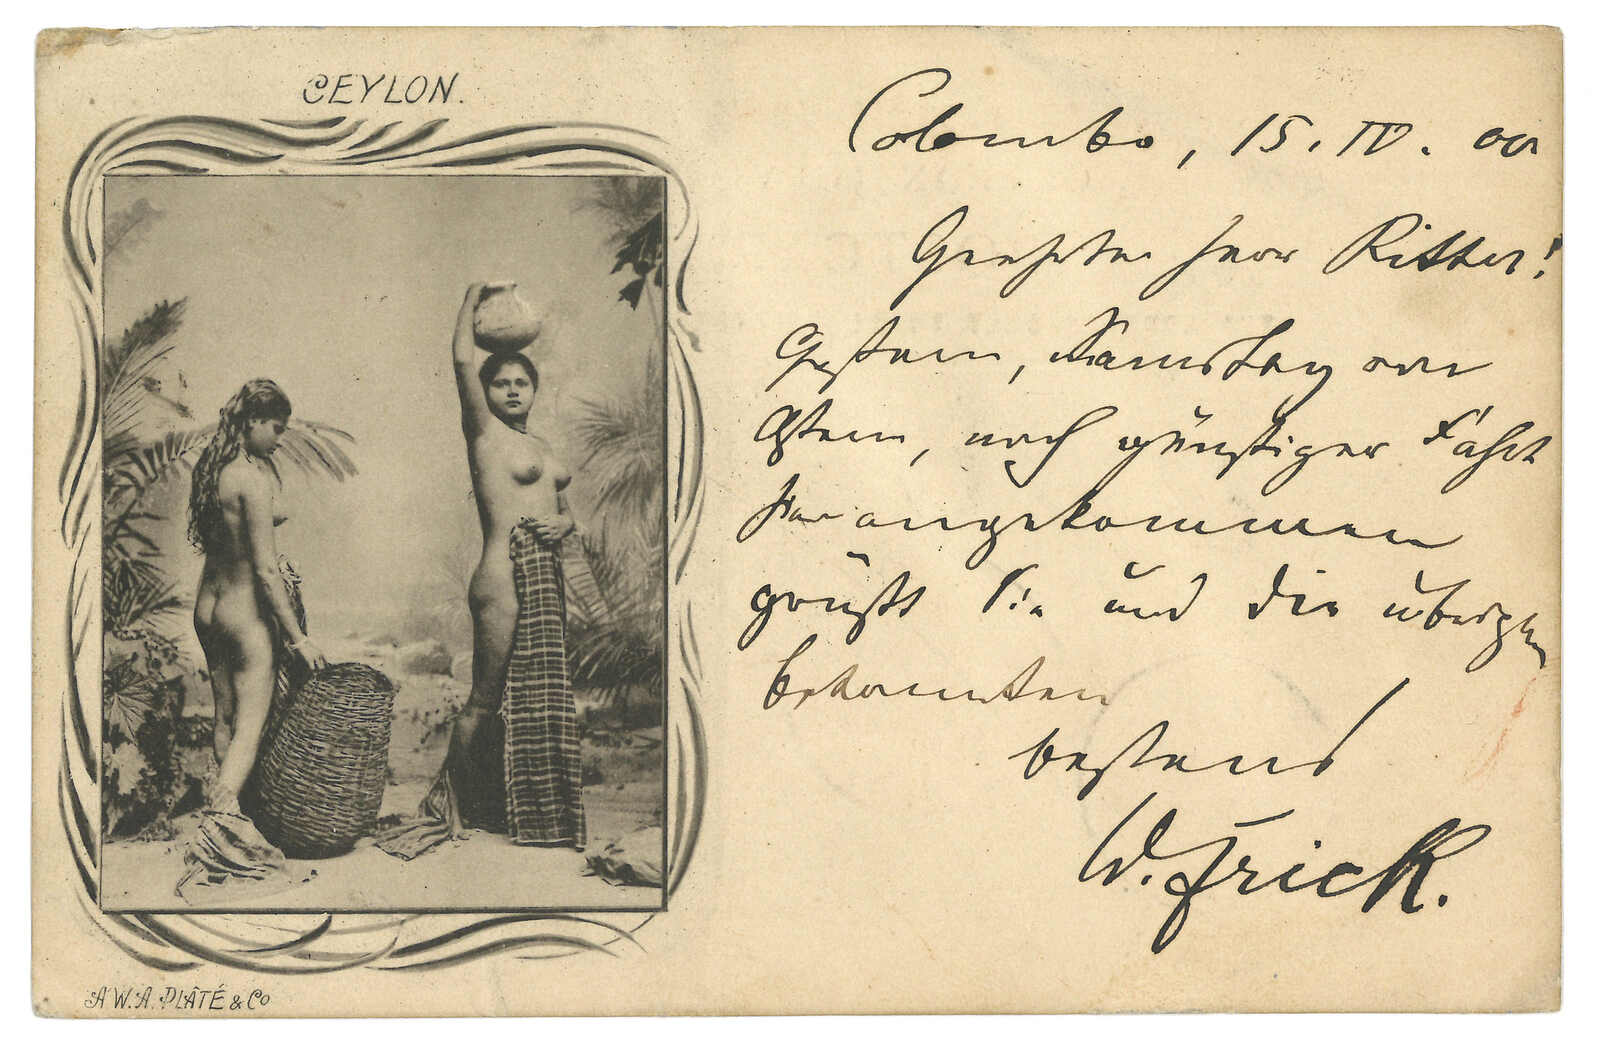 CEYLON.
Colombo, 15. IV. 00
Geehrter Herr Ritter!
Gestern, Samstag vor
Ostern, nach günstiger Fahrt
hier angekommen
grüßt Sie und die übrigen
Bekannten
bestens
W. Frick.
A W.A. PLÂTÉ & Co